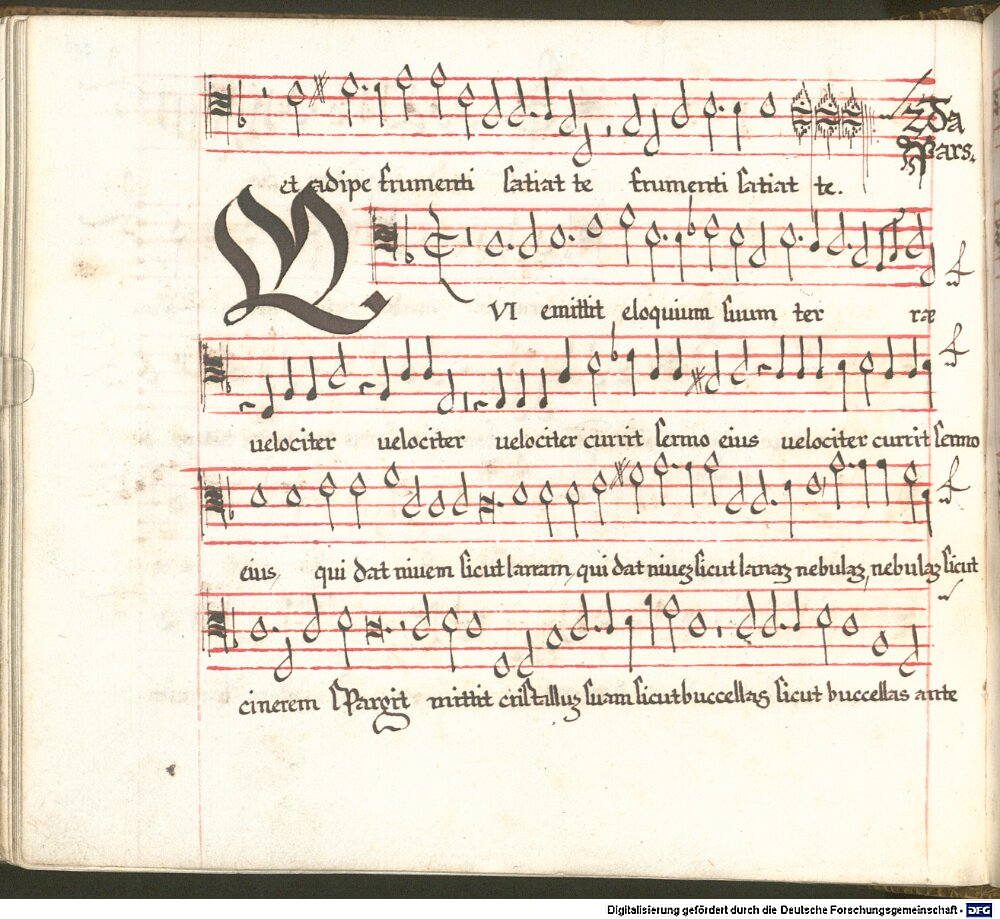 2da
Pars.
et adipe frumenti satiat te frumenti satiat te.
QVI emittit eloquium suum ter ræ
uelociter uelociter uelociter currit sermo eius uelociter currit sermo
eius, qui dat niuem sicut lanam, qui dat niueʒ sicut lanaʒ nebulaʒ, nebulaʒ sicut
cinerem sPargit mittit cristalluʒ suam sicut buccellas sicut buccellas ante
Digitalisierung gefördert durch die Deutsche Forschungsgemeinschaft - DFG